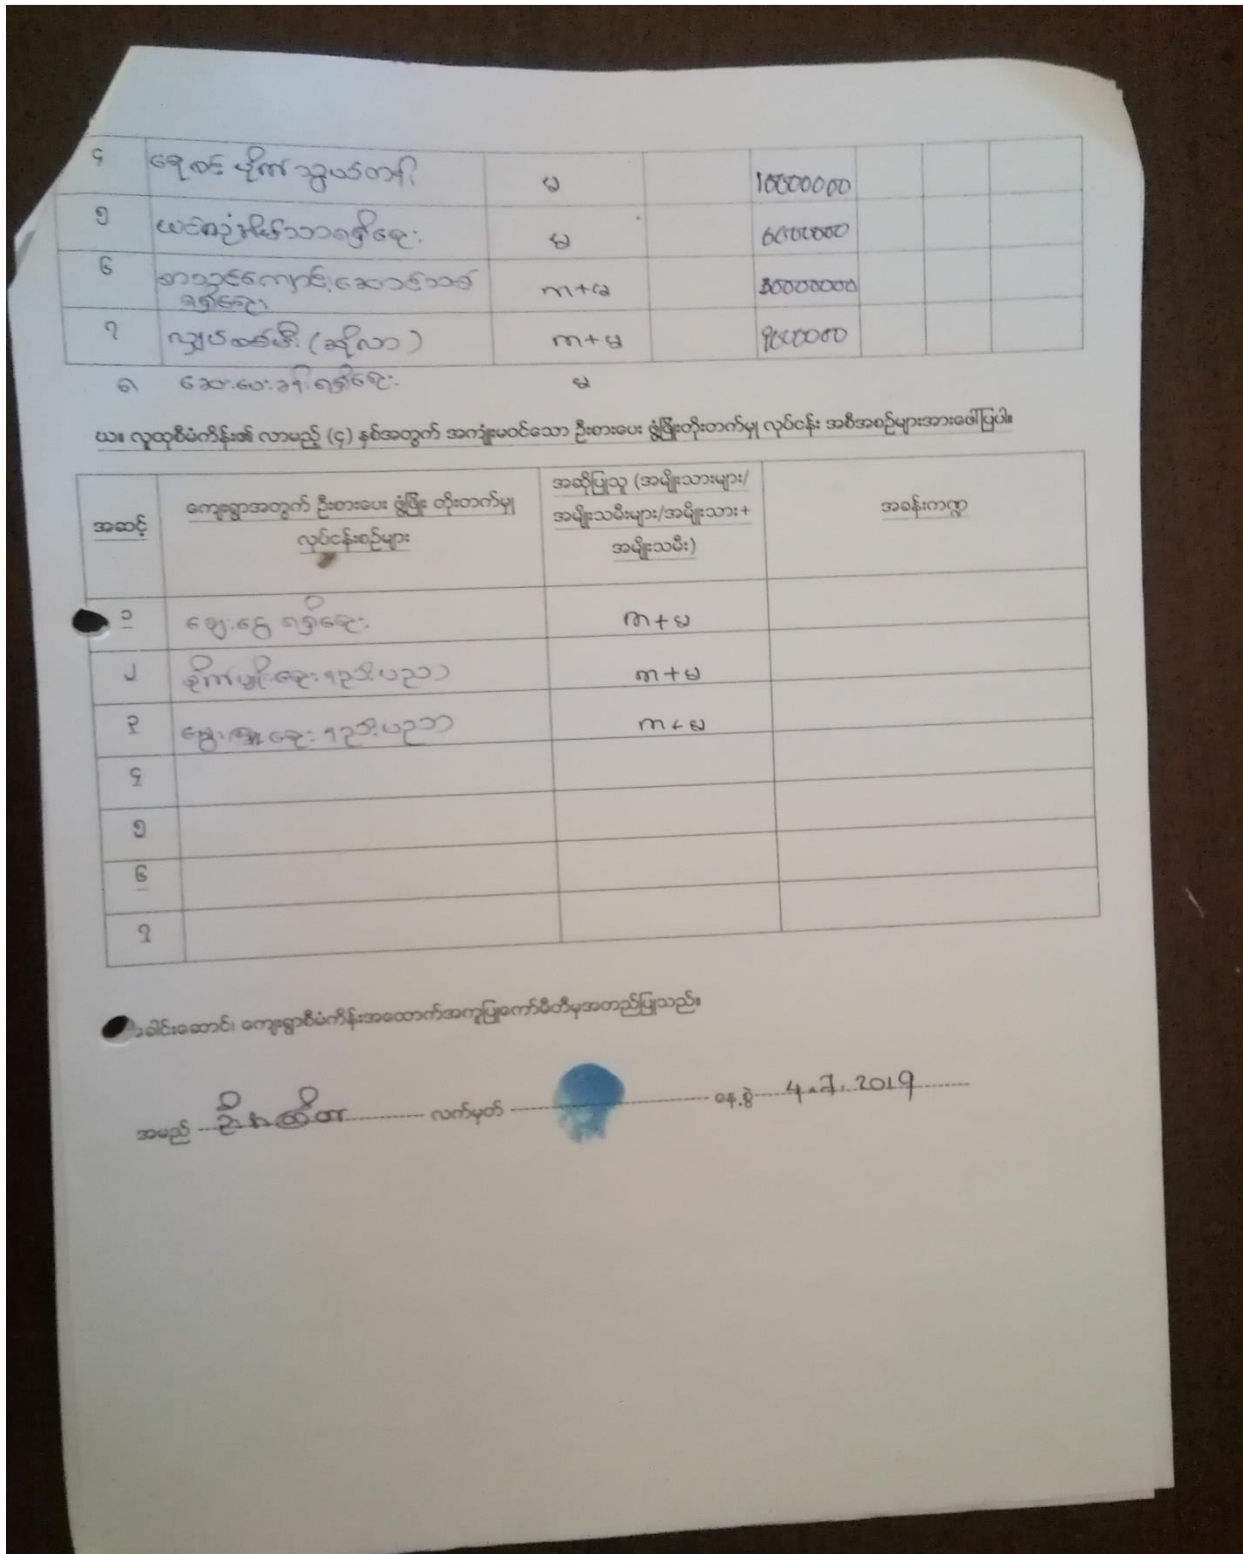 ၄ ရေလင်ပိုက်သွယ်တန်း မ 10000000
၅ မ 6000000
၆ စာသင်ကျောင်းဆောင်သစ် က+မ 30000000
ရရှိရေး
၇ လျှပ်စစ်မီး (ဆိုလာ) က+မ 9000000
၈ ဆေးပေးခန်းရရှိရေး မ
ဃ။ လူထုစီမံကိန်း၏ လာမည့် (၄) နှစ်အတွက် အကျုံးမဝင်သော ဦးစားပေး ဖွံ့ဖြိုးတိုးတက်မှု လုပ်ငန်း အစီအစဉ်များအားဖော်ပြပါ။
အဆင့် ကျေးရွာအတွက် ဦးစားပေး ဖွံ့ဖြိုး တိုးတက်မှု အဆိုပြုသူ (အမျိုးသားများ/ အခန်းကဏ္ဍ
လုပ်ငန်းစဉ်များ အမျိုးသမီးများ/အမျိုးသား+
အမျိုးသမီး)
၁ ချေးငွေ ရရှိရေး က+မ
၂ စိုက်ပျိုးရေးနည်းပညာ က+မ
၃ မွေးမြူရေးနည်းပညာ က+မ
၄
၅
၆
၇
ခေါင်းဆောင်၊ ကျေးရွာစီမံကိန်းအထောက်အကူပြုကော်မီတီမှအတည်ပြုသည်။
အမည် လက်မှတ် နေ့စွဲ 4.7.2019